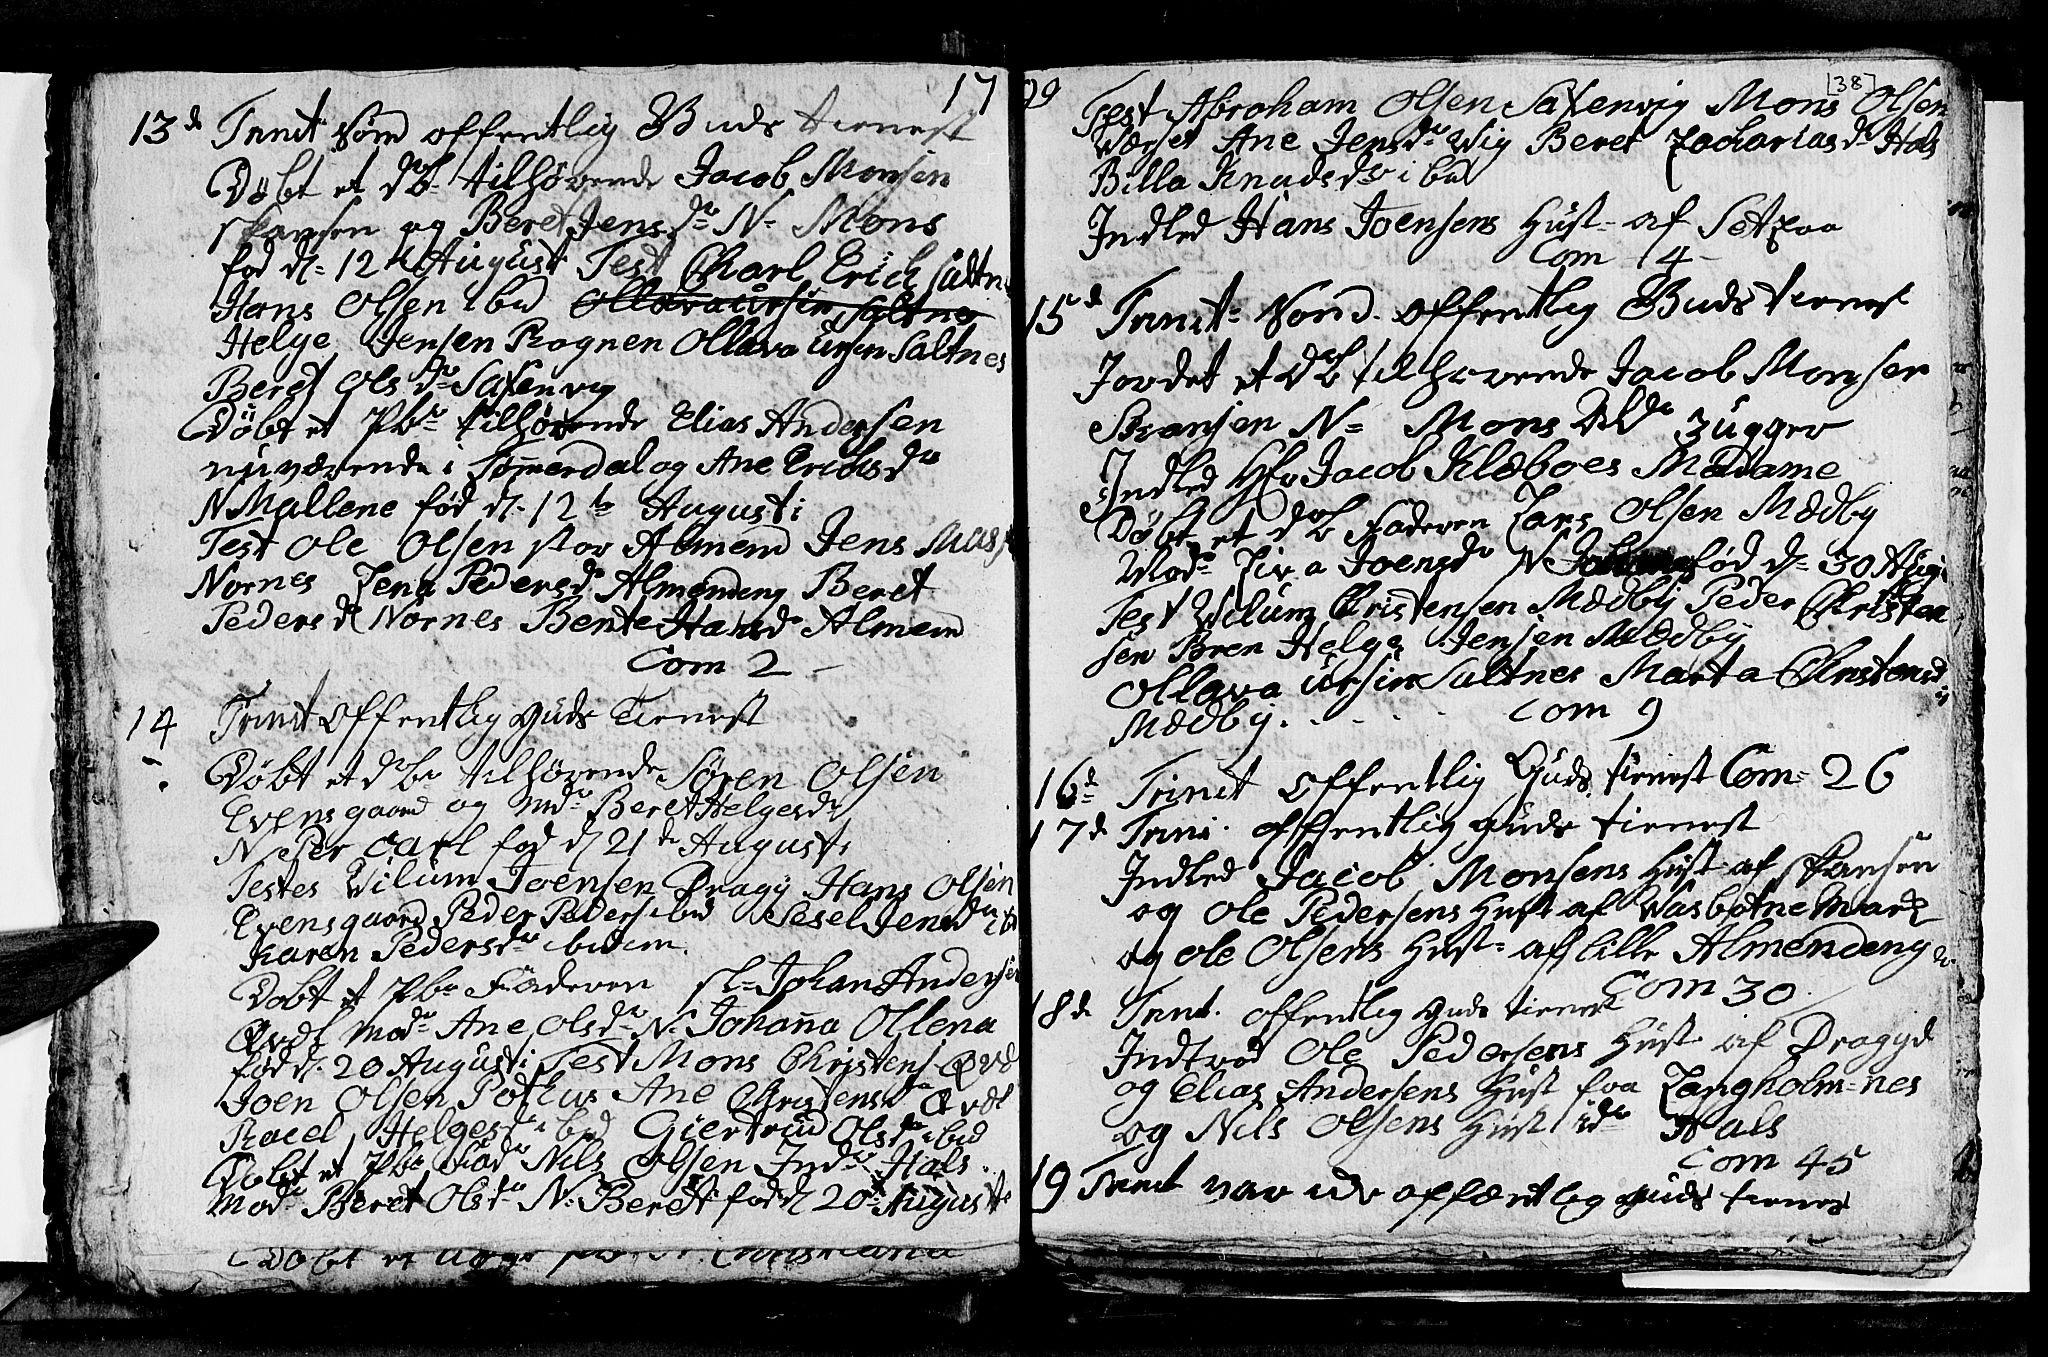 17
13de Trinit offentlig Guds tienest
Døbt et d.b. tilhørende Jacob Monsen
skansen og Beret Jens dr N. Mons
fød d. 12te Augusti Test Charl Erich Saltnes
Hans Olsen ibid Ollava Ursin Saltnes
Helge Jensen Rognen Ollava Ursin Saltnes
Beret Ols dr Saxenvig
Døbt et Pb. tilhørende Elias Andersen
nuværende i Sømmerdal og Ane Erichs dr
N Mallene fød d. 12te Augusti
Test Ole Olsen stor Almend Jens Mass
Nornes Lena Peders dr Almendeng Beret
Peders dr Nornes Bente Hans dr Almend
Com 2
14 Trinit offentlig Guds Tienest
Døbt et d.b. tilhørende Søren Olsen
Evensgaard og Mdr Beret Helges dr
N Per Carl fød d 21de Augusti
Testes Vilum Joensen Dragy Hans Olsen
Evensgaard Peder Peders ibid Sesel Jens dr ib
Karen Peders dr ibidem.
Døbt et Pb. Faderen sl. Johan Andersen
Mod. Ane Ols dr N. Johanna Ollena
fød d. 20 Augusti Test Mons Christens
Joen Olsen Pothus Ane Christens dr
Racel Helges dr ibid Giertrud Ols dr ibid
Døbt et Pb. Fad. Nils Olsen Ind. Hals
Mod. Beret Ols dr N. Beret fød d 20de Augusti
Døbt et
99
[38]
Test Abraham Olsen Saxenvig Mons Olsen
Ane Jens dr Vig Beret Zacharias dr Hals
Billa Knuds dr ibid
Indled Hans Joensens Hust. af Setzaa
Com 14
15de Trinit. offentlig Guds tienest
Jordet et d.b. tilhørende Jacob Monsen
Skansen N. Mons 3 ugger
Indled Hr Jacob Klæboes Madame
Døbt et d.b. Faderen Lars Olsen Mædby
Mod. Liva Joens dr N fød d. 30 Aug
Test Vilum Christensen Mædby Peder Christen
sen Bren Helge Jensen Mædby
Ollava Ursin Saltnes Marta Christens dr
Mædby. Com 9
16de Trinit offentlig Guds tienest Com. 26
17de Trini. offentlig Guds tienest
Indled Jacob Monsens Hust. af Skansen
og Ole Pedersens Hust af Vasbotnemark
og Ole Olsens Hust. af lille Almendeng
Com 30
18de Trint. offentlig Guds tienest
Indtrod Ole Pedersens Hust. af Dragyd
og Elias Andersens Hust fra Langholm-nes
og Nils Olsens Hust Hals
Com 45
19 Trinit var offentlig Guds tienest